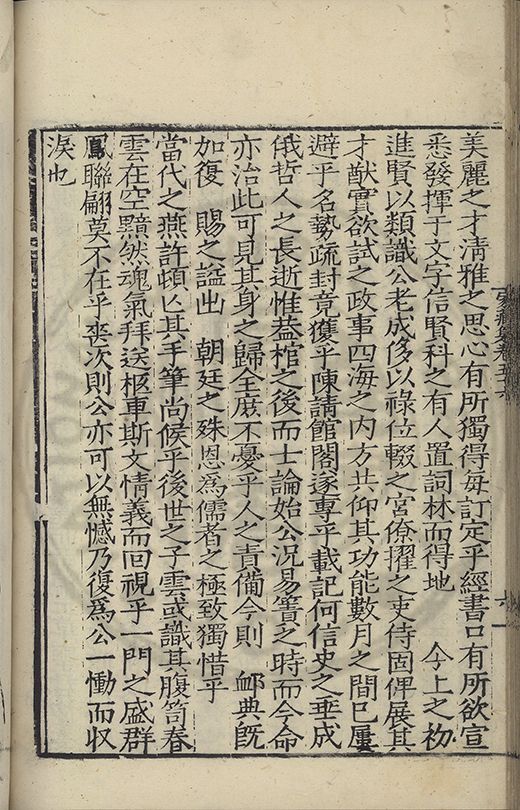 美麗之才清雅之思心有所獨得每訂定乎經書口有所欲宣
悉發揮于文字信賢科之有人置詞林而得地　今上之初
進賢以類識公老成侈以祿位輟之宮僚擢之吏侍固俾展其
才猷實欲試之政事四海之内方共仰其功能數月之間已屢
避乎名勢疏封竟獲乎陳請館閣遂專乎載記何信史之垂成
俄哲人之長逝惟葢棺之後而士論始公況易簀之時而今命
亦治此可見其身之歸全庶不憂乎人之責備今則　卹典旣
如復　賜之諡出　朝廷之殊恩爲儒者之極致獨惜乎
當代之燕許頓亾其手筆尚候乎後世之子雲或識其腹笥春
雲在空黯然魂氣拜送柩車斯文情義而回視乎一門之盛群
鳳聯翩莫不在乎喪次則公亦可以無憾乃復爲公一慟而収
淚也